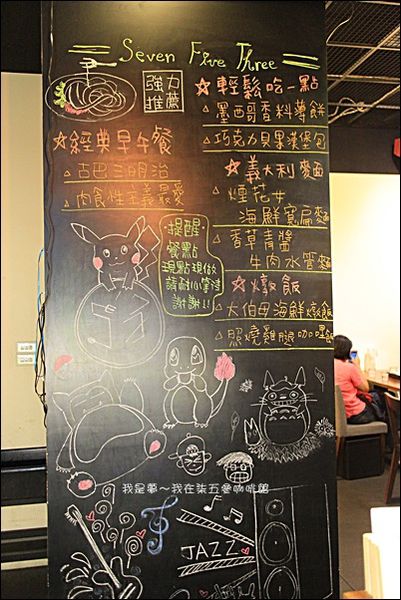 Seven Five Three
強力
推薦
☆經典早午餐
△古巴三明治
△肉食性主義最愛
☆輕鬆吃一點
△墨西哥香料薄餅
△巧克力貝果漢堡包
☆義大利麵
△煙花女
海鮮寬扁麵
△香草青醬
牛肉水管麵
☆燉飯
△大伯母海鮮燉飯
△照燒雞腿咖哩飯
提醒
餐點
現點現做
請耐心等待
謝謝!!
我是夢～我在柒五參咖啡館
JAZZ